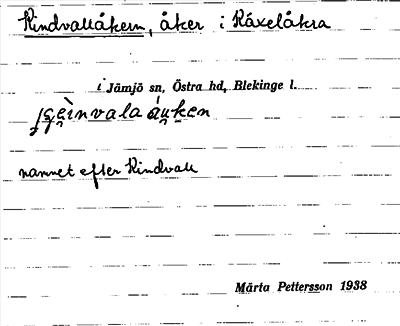 Kindvallåkern, åker i Råxelåkra
i Jämjö sn, Östra hd, Blekinge l.
namnet efter Kindvall
Märta Pettersson 1938